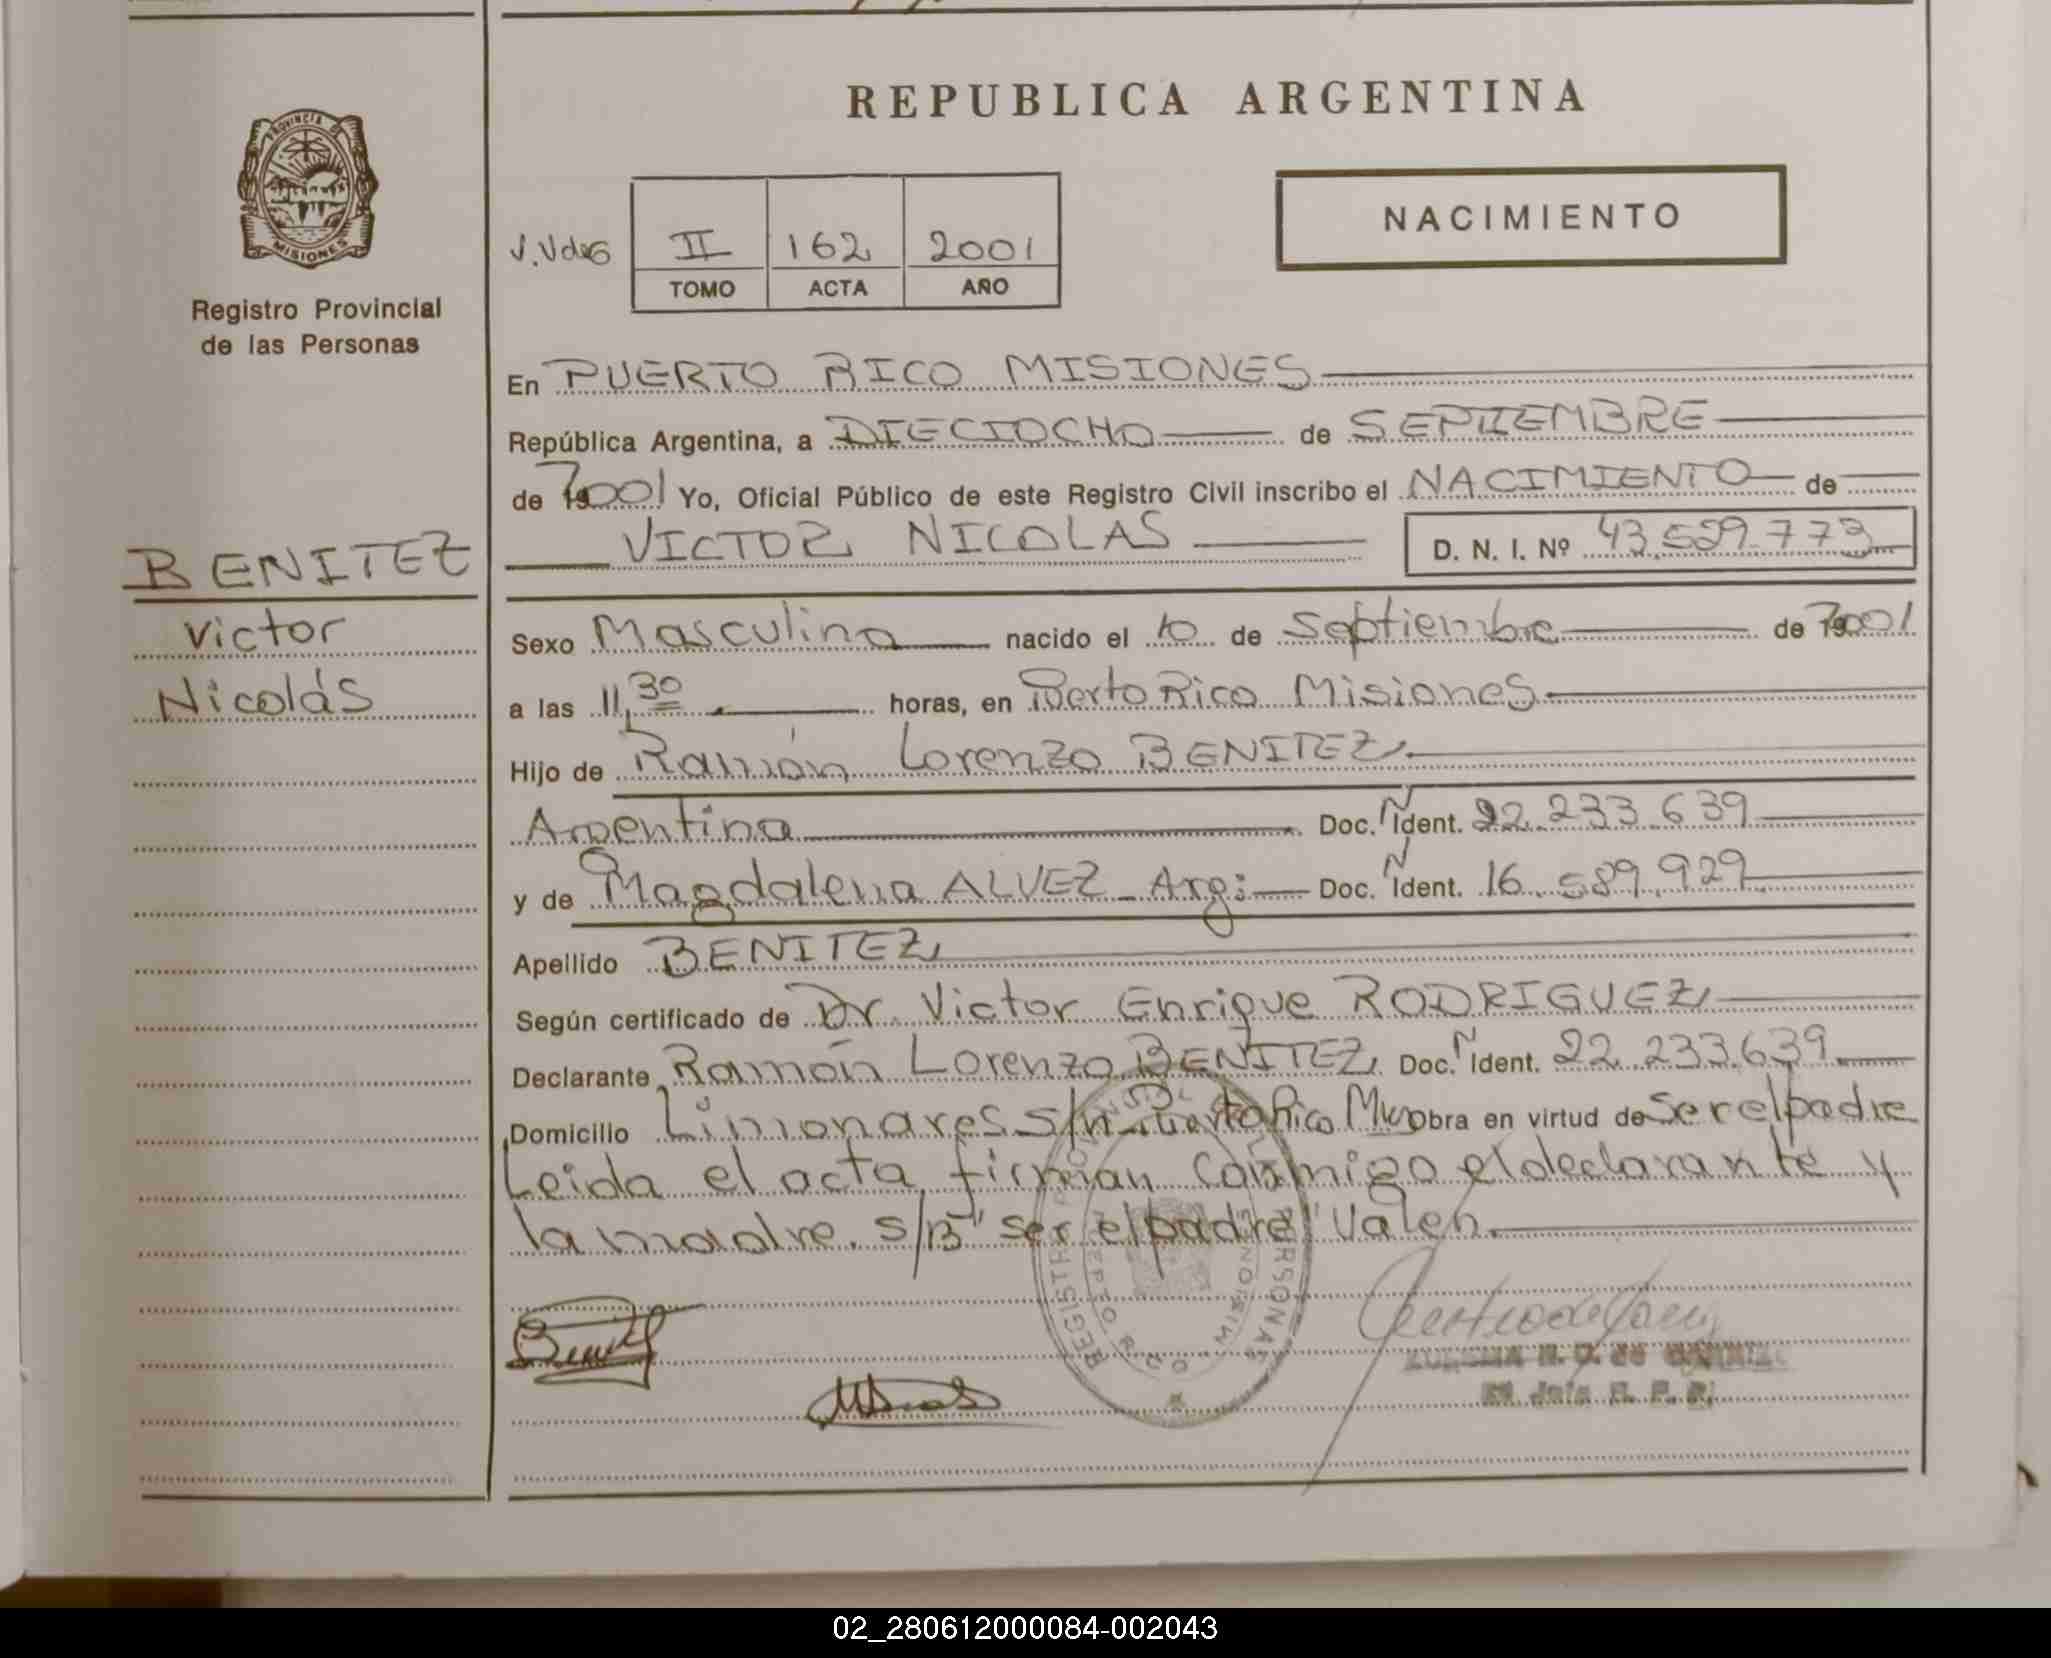 REPUBLICA ARGENTINA
PROVINCIA DE
MISIONES
Registro Provincial
de las Personas
NACIMIENTO
II 162 2001
TOMO ACTA AÑO
En PUERTO RICO MISIONES
República Argentina, a DIECIOCHO de SEPTIEMBRE
de 2001 Yo, Oficial Público de este Registro Civil inscribo el NACIMIENTO de
VICTOR NICOLAS D. N. I. Nº 43.529.773
BENITEZ
Victor
Nicolás
Sexo Masculino nacido el 10 de Septiembre de 2001
a las 11,30 horas, en Puerto Rico Misiones
Hijo de Ramón Lorenzo BENITEZ
Argentino Doc. N Ident. 22.233.639
y de Magdalena ALVEZ - Arg: Doc. N Ident. 16.589.929
Apellido BENITEZ
Según certificado de Dr. Victor Enrique RODRIGUEZ
Declarante Ramón Lorenzo BENITEZ Doc. N Ident. 22.233.639
Domicilio Limonares s/n Puerto Rico Mnes obra en virtud de Ser el padre
Leida el acta, firman conmigo el declarante y
la madre. s/B "ser el padre" Valen.
02_280612000084-002043